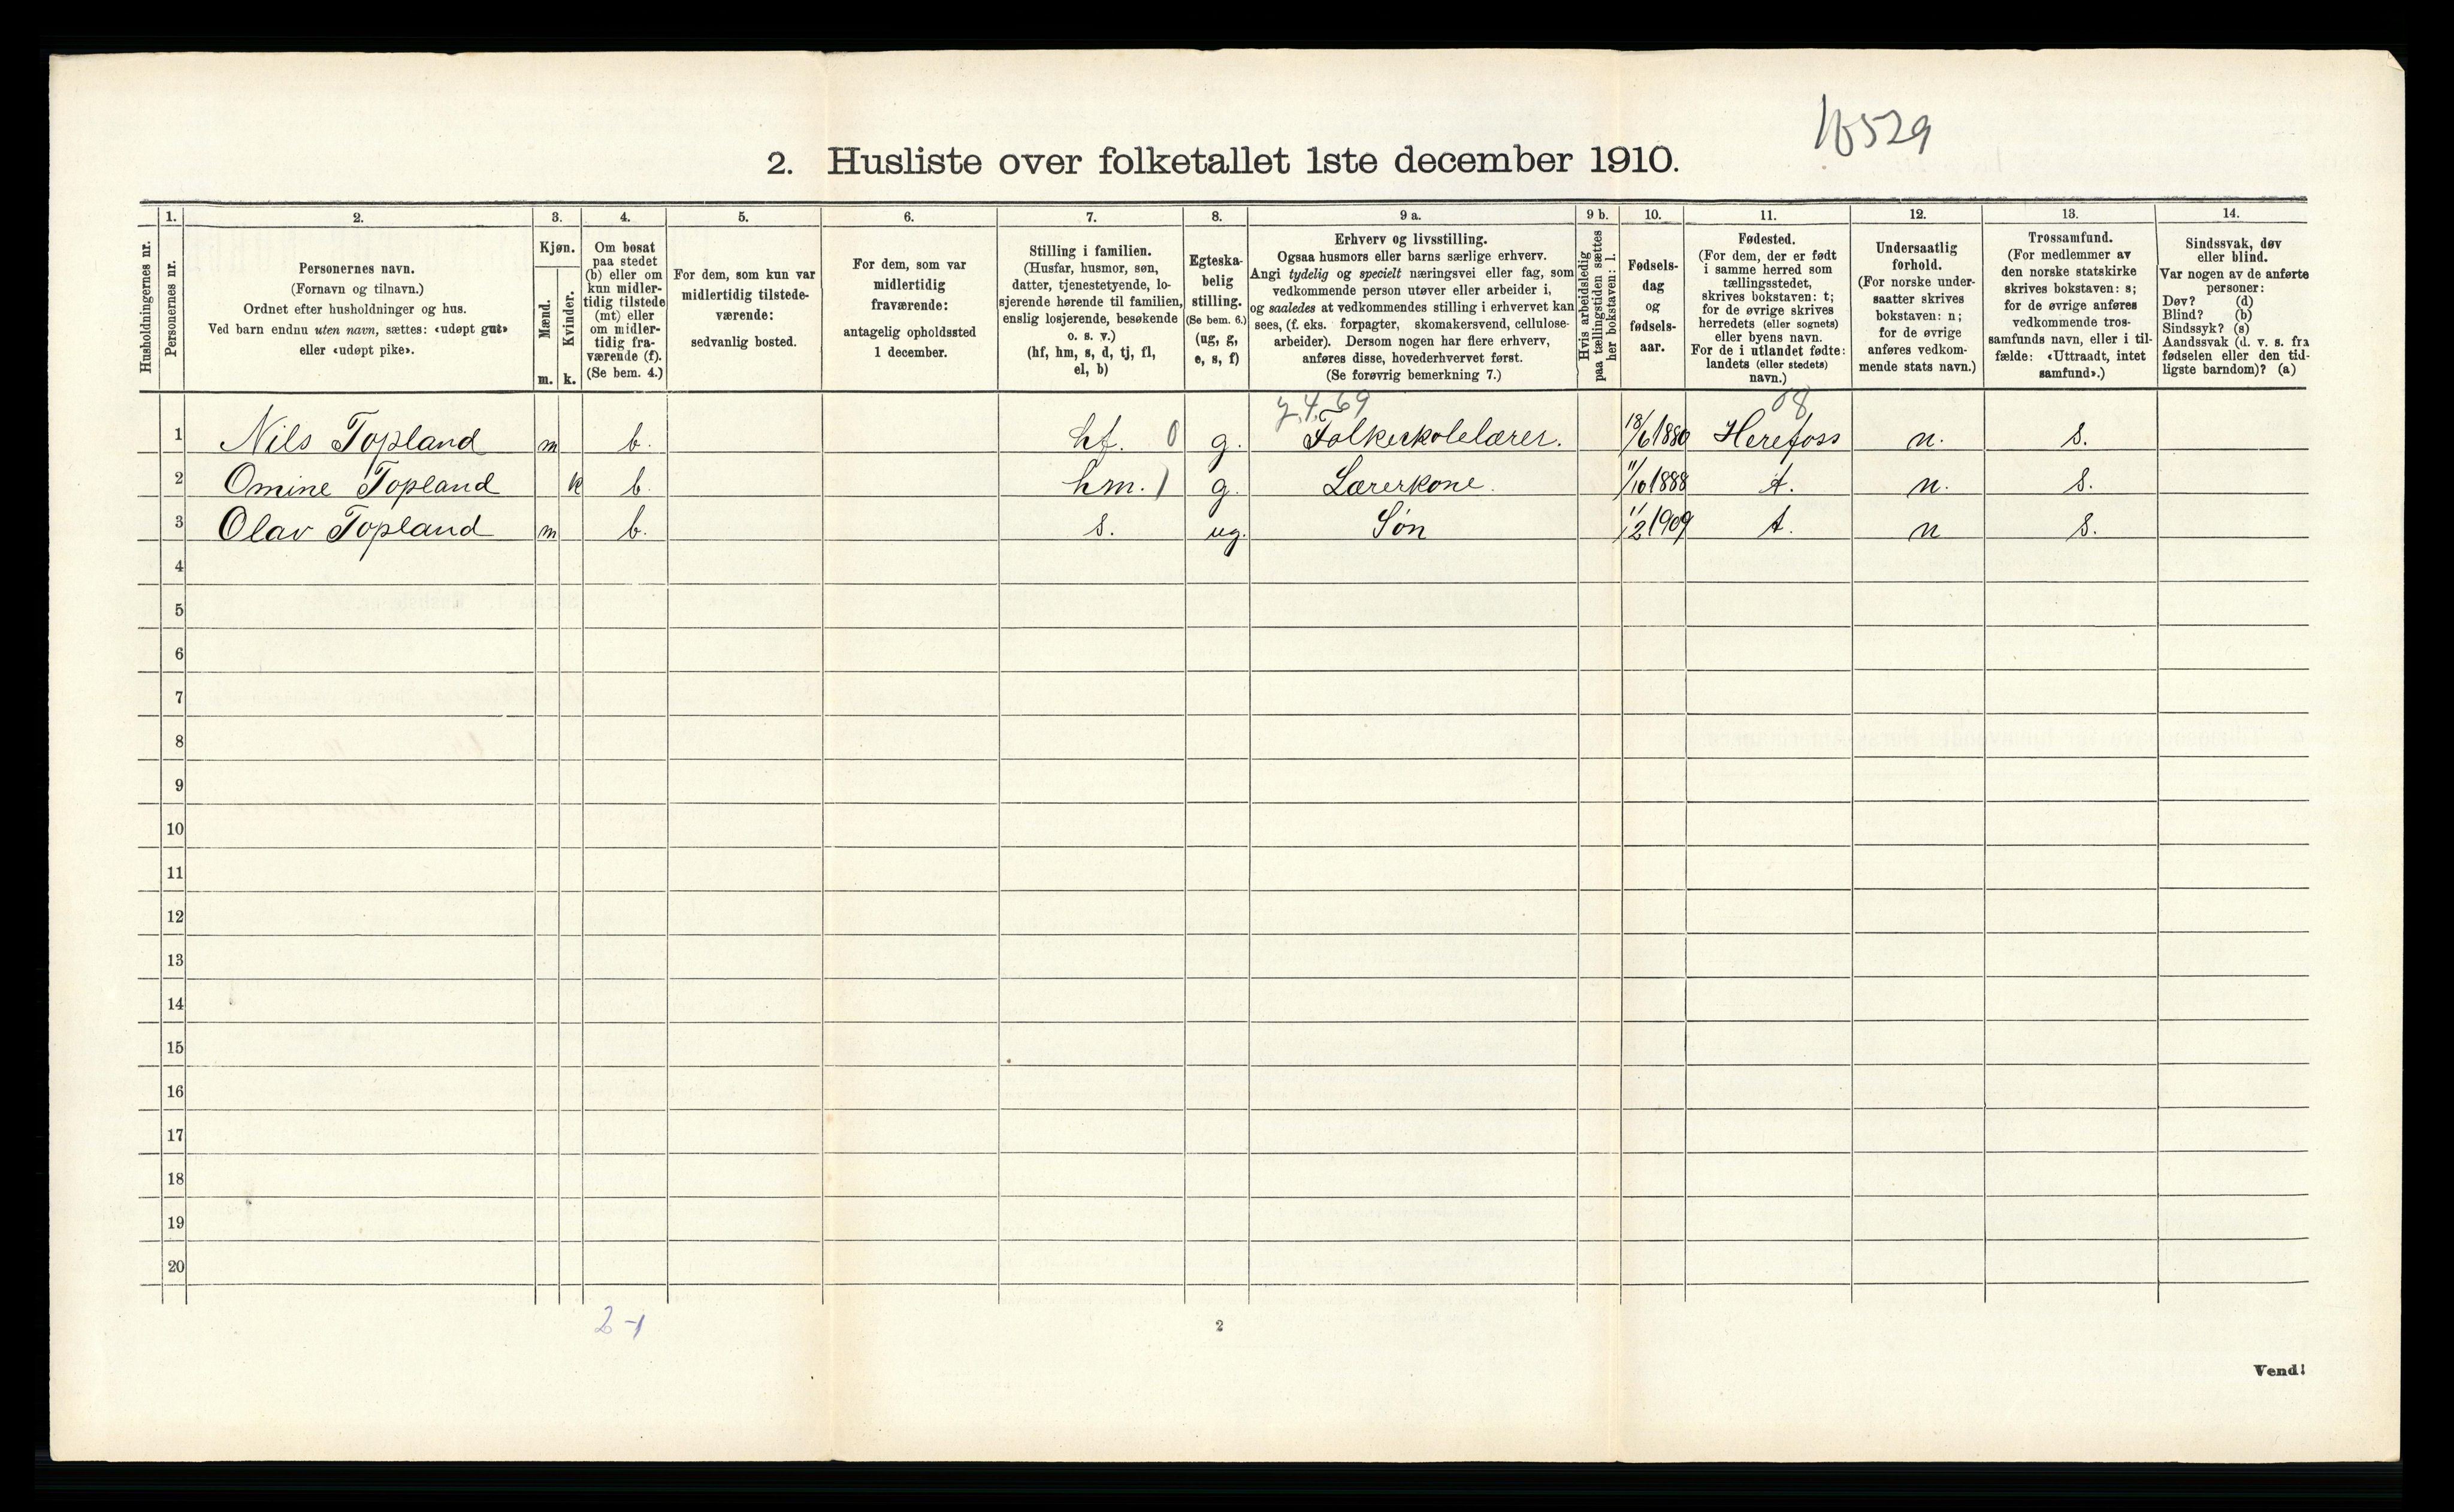 16529
2. Husliste over folketallet 1ste december 1910.
Husholdningernes nr.
1. Personernes nr.
2. Personernes navn. (Fornavn og tilnavn.) Ordnet efter husholdninger og hus. Ved barn endnu uten navn, sættes: «udøpt gut» eller «udøpt pike».
3. Kjøn. Mænd. m. Kvinder. k.
4. Om bosat paa stedet (b) eller om kun midlertidig tilstede (mt) eller om midlertidig fraværende (f). (Se bem. 4.)
5. For dem, som kun var midlertidig tilstedeværende: sedvanlig bosted.
6. For dem, som var midlertidig fraværende: antagelig opholdssted 1 december.
7. Stilling i familien. (Husfar, husmor, søn, datter, tjenestetyende, losjerende hørende til familien, enslig losjerende, besøkende o. s. v.) (hf, hm, s, d, tj, fl, el, b)
8. Egteskabelig stilling. (Se bem. 6.) (ug, g, e, s, f)
9 a. Erhverv og livsstilling. Ogsaa husmors eller barns særlige erhverv. Angi tydelig og specielt næringsvei eller fag, som vedkommende person utøver eller arbeider i, og saaledes at vedkommendes stilling i erhvervet kan sees, (f. eks. forpagter, skomakersvend, cellulosearbeider). Dersom nogen har flere erhverv, anføres disse, hovederhvervet først. (Se forøvrig bemerkning 7.)
9 b. Hvis arbeidsledig paa tællingstiden sættes her bokstaven: l.
10. Fødselsdag og fødselsaar.
11. Fødested. (For dem, der er født i samme herred som tællingsstedet, skrives bokstaven: t; for de øvrige skrives herredets (eller sognets) eller byens navn. For de i utlandet fødte: landets (eller stedets) navn.)
12. Undersaatlig forhold. (For norske undersaatter skrives bokstaven: n; for de øvrige anføres vedkommende stats navn.)
13. Trossamfund. (For medlemmer av den norske statskirke skrives bokstaven: s; for de øvrige anføres vedkommende trossamfunds navn, eller i tilfælde: «Uttraadt, intet samfund».)
14. Sindssvak, døv eller blind. Var nogen av de anførte personer: Døv? (d) Blind? (b) Sindssyk? (s) Aandssvak (d. v. s. fra fødselen eller den tidligste barndom)? (a)
7.4.69 08
1 Nils Topland m b. hf. 0 g. Folkeskolelærer. 18/6 1880 Herefoss n. s.
2 Omine Topland k b. hm. 1 g. Lærerkone. 11/10 1888 t. n. s.
3 Olav Topland m b. s. ug. Søn 11/2 1909 t. n s.
4
5
6
7
8
9
10
11
12
13
14
15
16
17
18
19
20
2-1
2
Vend!